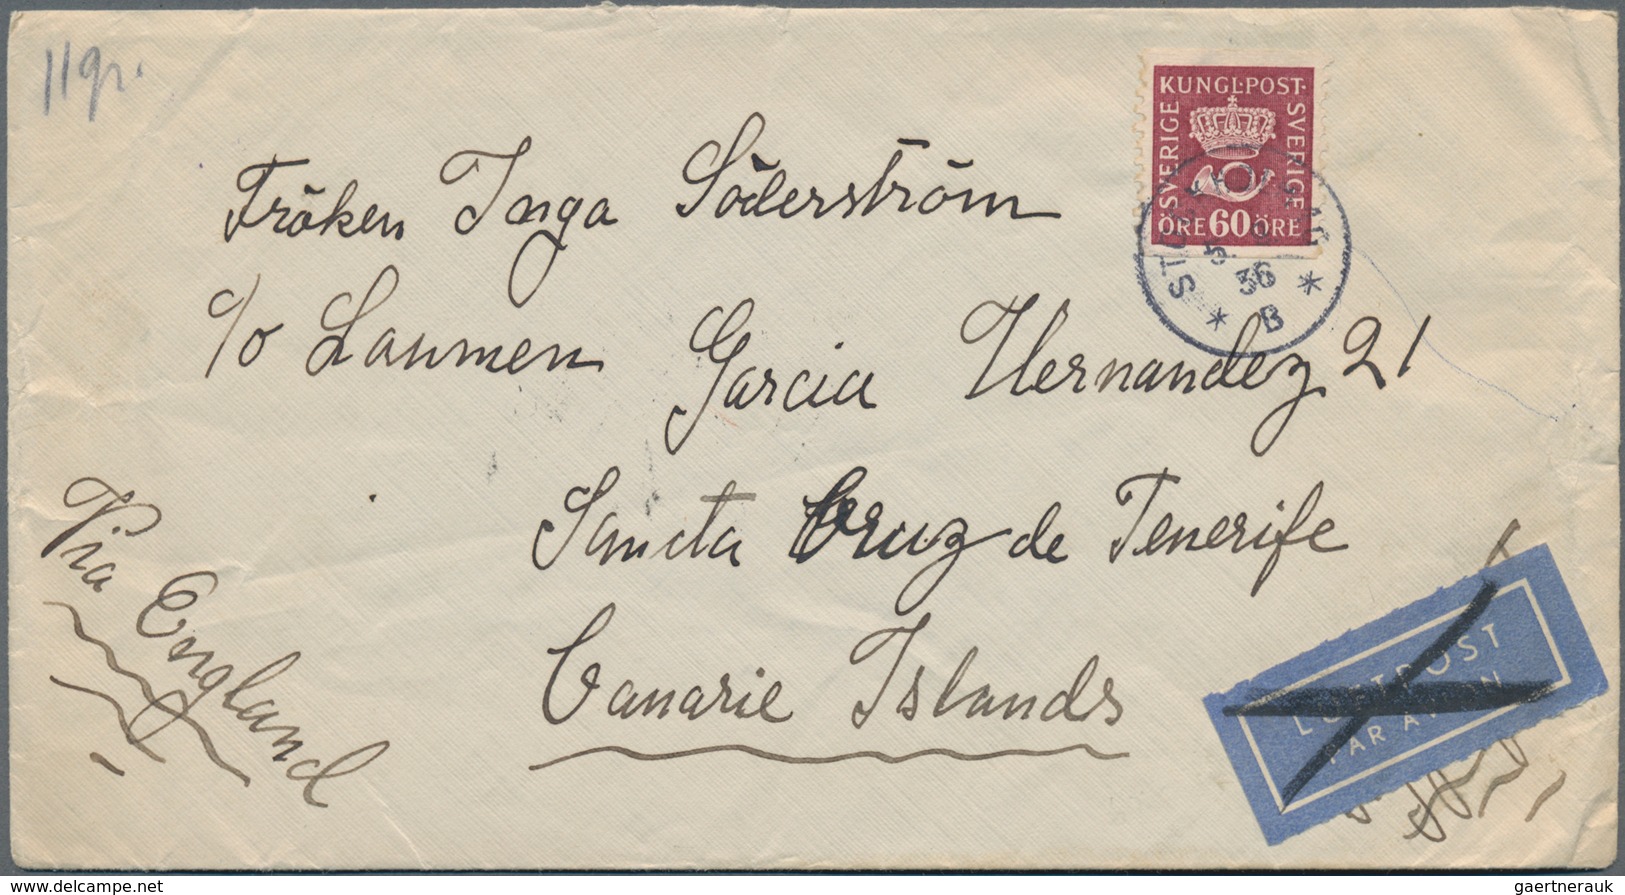 11gr.
KUNGL·POST·
SVERIGE
SVERIGE
ÖRE 60 ÖRE
STOCKHOLM
5
36
* B *
Fröken Inga Söderström
c/o Laumen Garcia Hernandez 21
Sancta Cruz de Tenerife
Canarie Islands
Via England
LUFTPOST
PAR AVION
www.delcampe.net
gaertnerauk